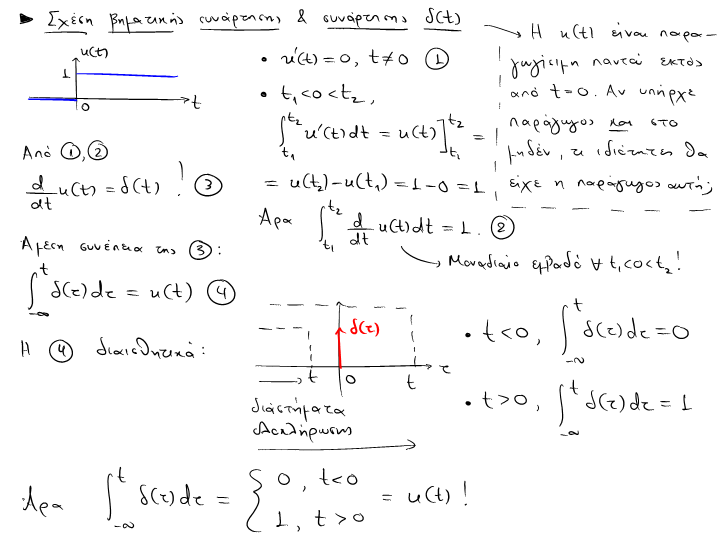 ► Σχέση βηματικής συνάρτησης & συνάρτησης δ(t)
u(t)
1
0
t
• u'(t) = 0, t ≠ 0 ①
• t₁ < 0 < t₂,
∫_{t₁}^{t₂} u'(t)dt = u(t)]_{t₁}^{t₂} =
= u(t₂) - u(t₁) = 1 - 0 = 1
Άρα ∫_{t₁}^{t₂} d/dt u(t)dt = 1. ②
Μοναδιαίο εμβαδό ∀ t₁<0<t₂!
Η u(t) είναι παρα-
γωγίσιμη παντού εκτός
από t=0. Αν υπήρχε
παράγωγος και στο
μηδέν, τι ιδιότητες θα
είχε η παράγωγος αυτή;
Από ①, ②
d/dt u(t) = δ(t) ! ③
Άμεση συνέπεια της ③:
∫_{-∞}^{t} δ(τ)dτ = u(t) ④
Η ④ διαισθητικά:
δ(τ)
t
0
t
τ
διαστήματα
ολοκλήρωσης
• t<0, ∫_{-∞}^{t} δ(τ)dτ = 0
• t>0, ∫_{-∞}^{t} δ(τ)dτ = 1
Άρα ∫_{-∞}^{t} δ(τ)dτ = { 0, t<0
1, t>0 = u(t) !